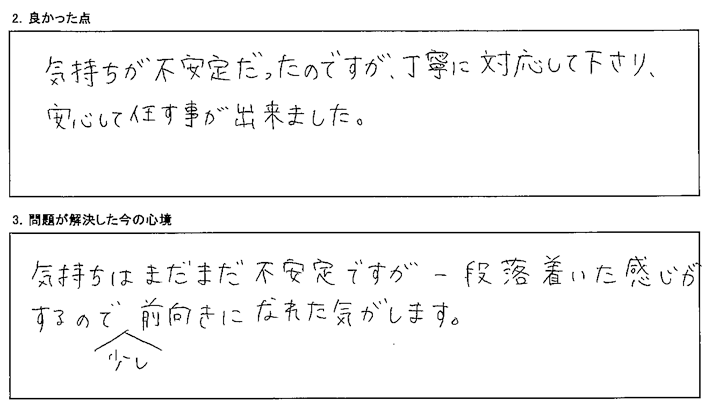 2. 良かった点
気持ちが不安定だったのですが、丁寧に対応して下さり、
安心して任す事が出来ました。
3. 問題が解決した今の心境
気持ちはまだまだ不安定ですが一段落着いた感じが
するので前向きになれた気がします。
少し